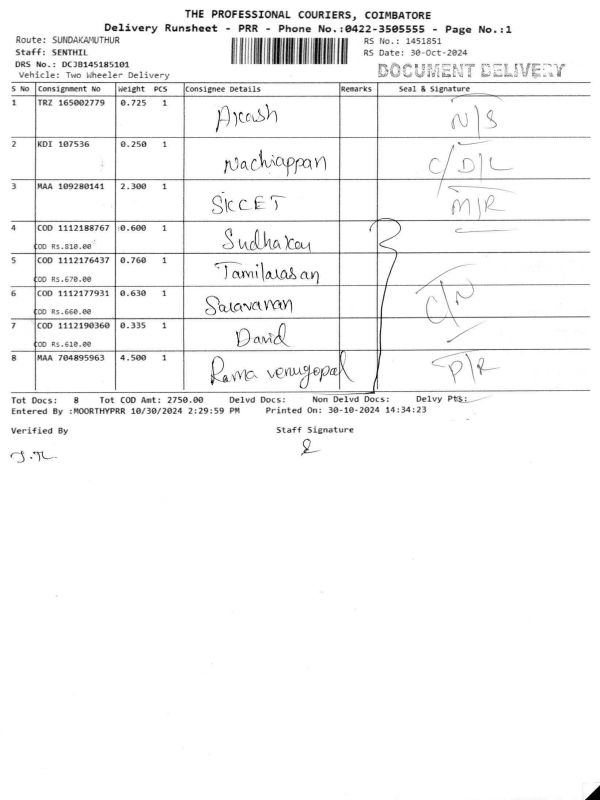 THE PROFESSIONAL COURIERS, COIMBATORE
Delivery Runsheet - PRR - Phone No.:0422-3505555 - Page No.:1
Route: SUNDAKAMUTHUR RS No.: 1451851
Staff: SENTHIL RS Date: 30-Oct-2024
DRS No.: DCJB145185101 DOCUMENT DELIVERY
Vehicle: Two Wheeler Delivery
S No Consignment No Weight PCS Consignee Details Remarks Seal & Signature
1 TRZ 165002779 0.725 1 Akash N/S
2 KDI 107536 0.250 1 Nachiappan C/D/L
3 MAA 109280141 2.300 1 SKCET M/R
4 COD 1112188767 0.600 1 Sudhakar
COD Rs.810.00
5 COD 1112176437 0.760 1 Tamilarasan
COD Rs.670.00
6 COD 1112177931 0.630 1 Saravanan C/N
COD Rs.660.00
7 COD 1112190360 0.335 1 David
COD Rs.610.00
8 MAA 704895963 4.500 1 Rama venugopal P/R
Tot Docs: 8 Tot COD Amt: 2750.00 Delvd Docs: Non Delvd Docs: Delvy Pts:
Entered By :MOORTHYPRR 10/30/2024 2:29:59 PM Printed On: 30-10-2024 14:34:23
Verified By Staff Signature